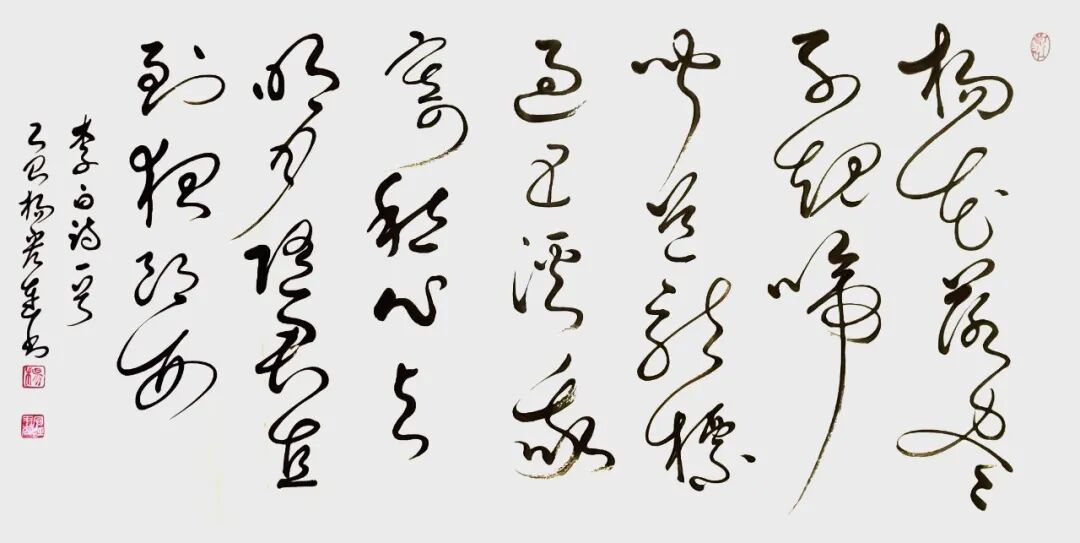 杨花落尽
子规啼
闻道龙标
过五溪我
寄愁心与
明月随君直
到夜郎西
李白诗一首
乙巳杨书